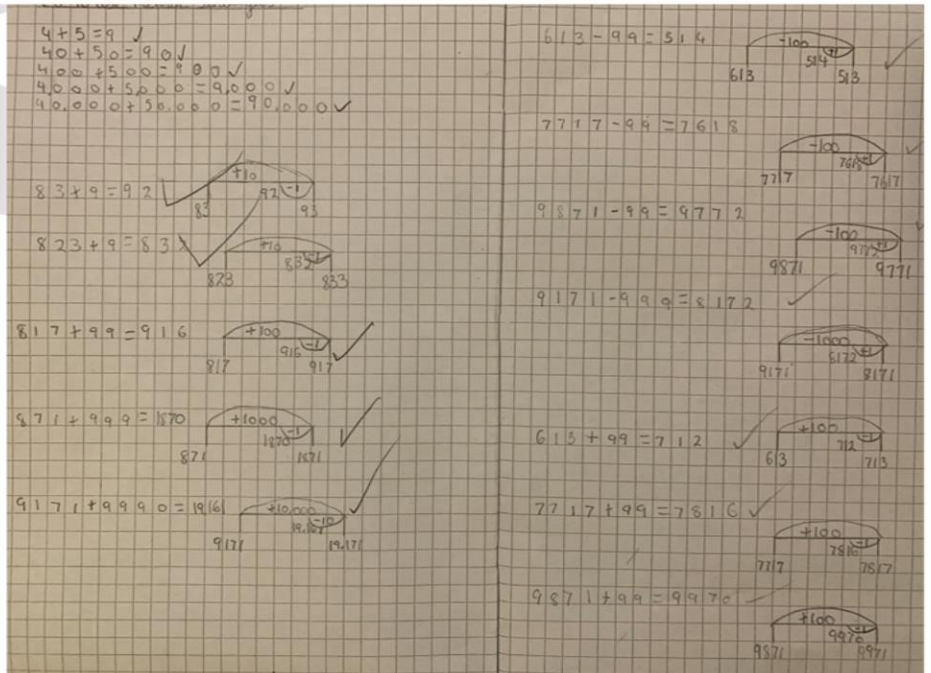 4+5=9
40+50=90
400+500=900
4000+5000=9,000
40.000+50.000=90.000
83+9=92
+10
92 -1
83 93
823+9=83
+10
832 -1
823 833
817+99=916
+100
916 -1
817 917
871+999=1870
+1000
1870 -1
871 1871
9171+9990=19161
+10,000
19.161 -10
9171 19.171
613-99=514
-100
514 +1
613 513
7717-99=7618
-100
7618
7717 7617
9871-99=9772
-100
9772 +1
9871 9771
9171-999=8172
-1000
8172 +1
9171 8171
613+99=712
+100
712 -1
613 713
7717+99=7816
+100
7816 -1
7717 7817
9871+99=9970
+100
9970 -1
9871 9971